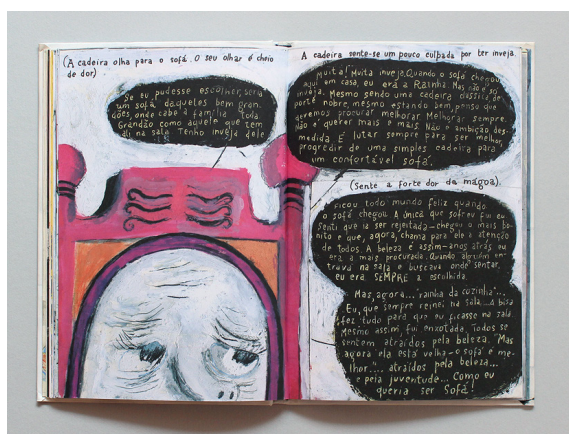 (A cadeira olha para o sofá. O seu olhar é cheio
de dor)
Se eu pudesse escolher, seria
um sofá daqueles bem gran-
dões, onde cabe a família toda.
Grandão como aquele que tem
ali na sala. Tenho inveja dele
A cadeira sente-se um pouco culpada por ter inveja.
Muita! Muita inveja. Quando o sofá chegou
aqui em casa, eu era a Rainha. Mas não é só
inveja. Mesmo sendo uma cadeira classuda, de
porte nobre, mesmo estando bem, penso que
queremos procurar melhorar. Melhorar sempre.
Não é querer mais e mais. Não é ambição des-
medida. É lutar sempre para ser melhor,
progredir de uma simples cadeira para
um confortável sofá.
(Sente a forte dor da mágoa).
Ficou todo mundo feliz quando
o sofá chegou. A única que sofreu fui eu.
Senti que ia ser rejeitada—chegou o mais bo-
nito e que, agora, chama para ele a atenção
de todos. A beleza é assim—anos atrás eu
era a mais procurada. Quando alguém en-
trava na sala e buscava onde sentar,
eu era SEMPRE a escolhida.
Mas, agora... rainha da cozinha"...
Eu, que sempre reinei na sala... A bisa
fez tudo para que eu ficasse na sala.
Mesmo assim, fui enxotada. Todos se
sentem atraídos pela beleza. "Mas
agora ela está velha—o sofá é me-
lhor"... atraídos pela beleza...
e pela juventude... Como eu
queria ser Sofá!